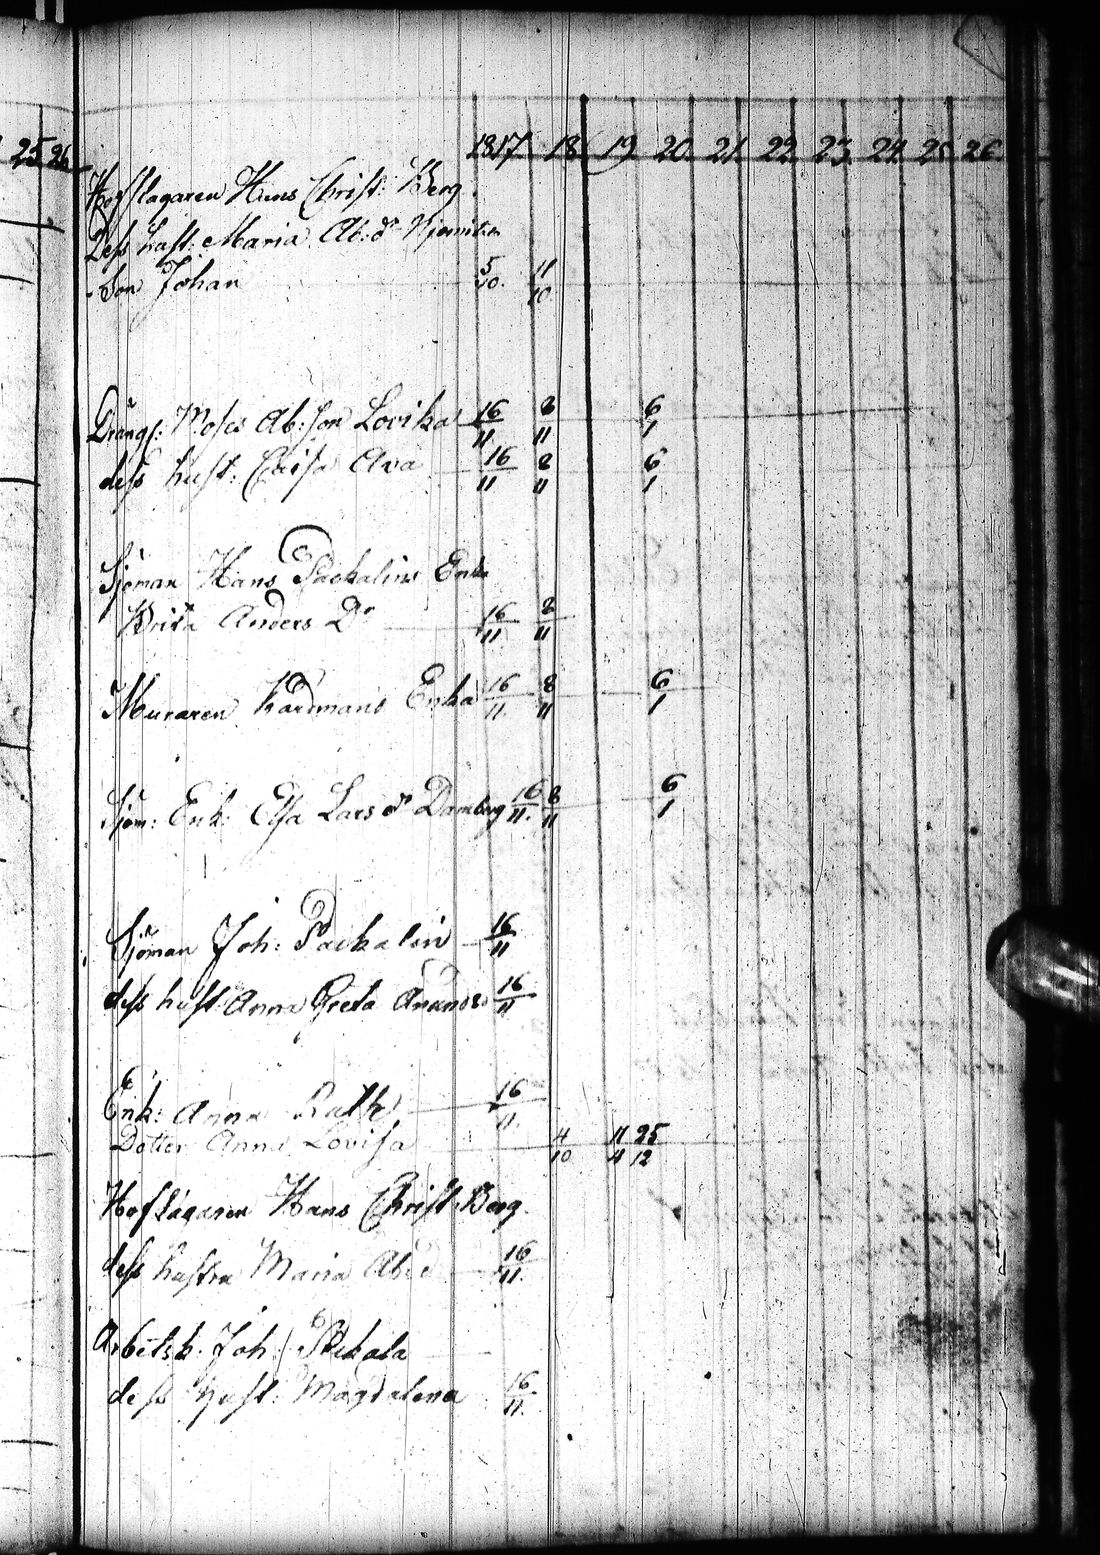 25 26
1817 18 19 20 21 22 23 24 25 26
Hofslagaren Hans Christ: Berg.
Dess hust: Maria Ab: dr
Son Johan 5/10. 11/10
Drängs: Moses Ab:son Lovika 16/11 8/11 6/1
dess hust: Caisa Ava 16/11 8/11 6/1
Sjöman Hans Packalins Enka
Brita Anders Dr 16/11. 8/11
Muraren Hardmans Enka 16/11. 8/11 6/1
Sjöm: Enk: Elsa Lars dr Damberg 16/11. 8/11 6/1
Sjöman Joh: Packalin 16/11
dess hust: Anna Greta 16/11
Enk: Anna Rath 16/11.
Dotter Anna Lovisa 4/10 11/4 25/12
Hofslagaren Hans Christ: Berg.
dess hustru Maria Ab: d 16/11.
Arbetsk: Joh: Pekala
dess hust: Magdalena 16/11.